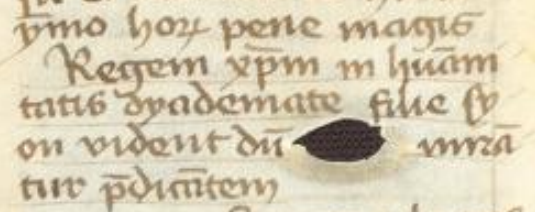 ymo hoꝝ pene magis
Regem xp̄m in huāni
tatis dyademate filie sy
on vident dū mirā
tur p̄dicātem